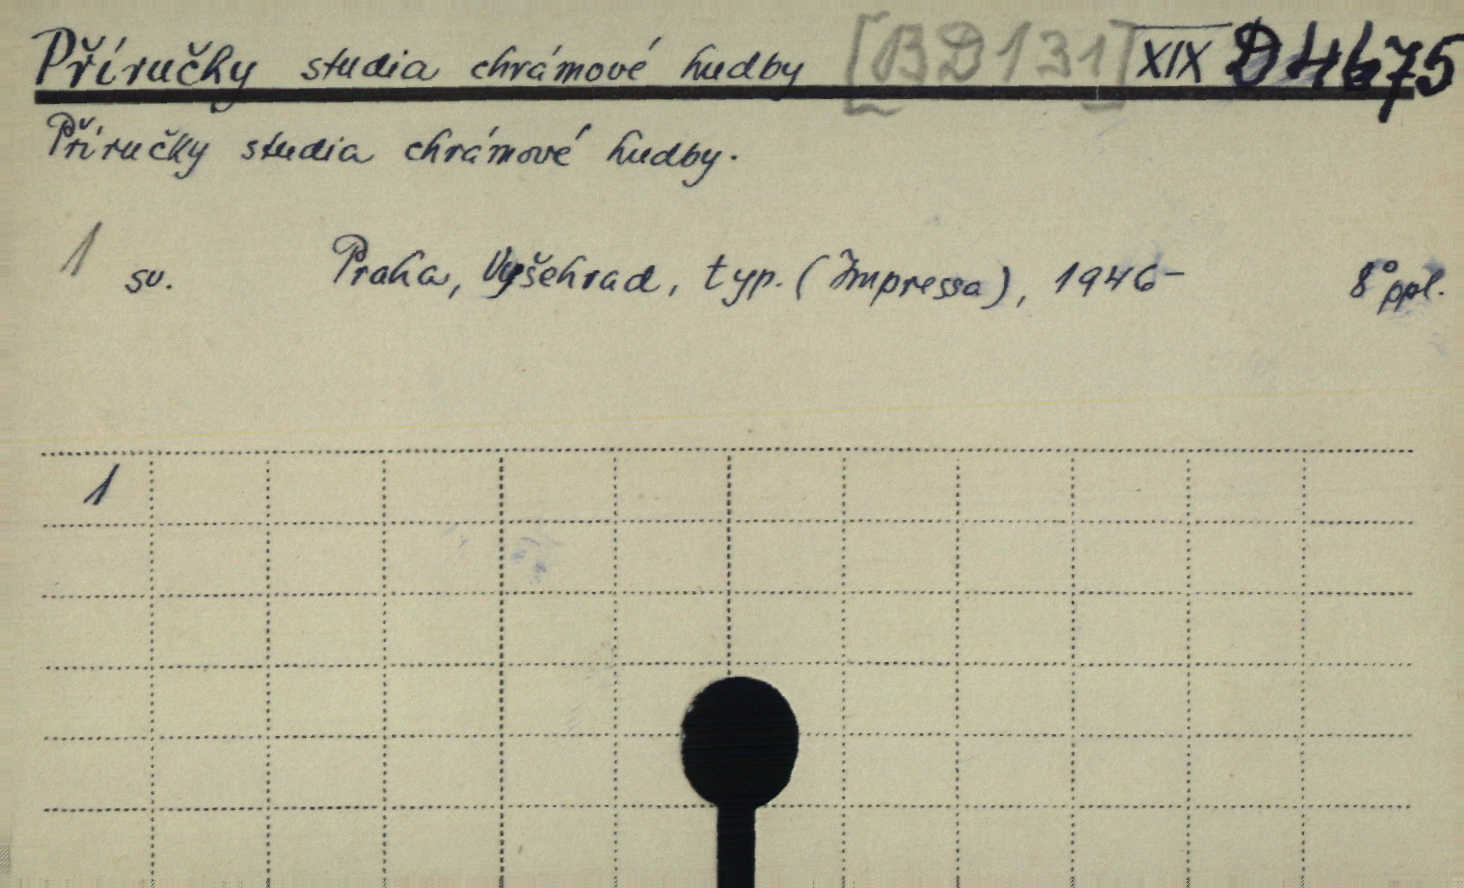 Příručky studia chrámové hudby [BD131] XIX D 4675
Příručky studia chrámové hudby.
1 sv. Praha, Vyšehrad, typ. (Impressa), 1946- 8° ppl.
1